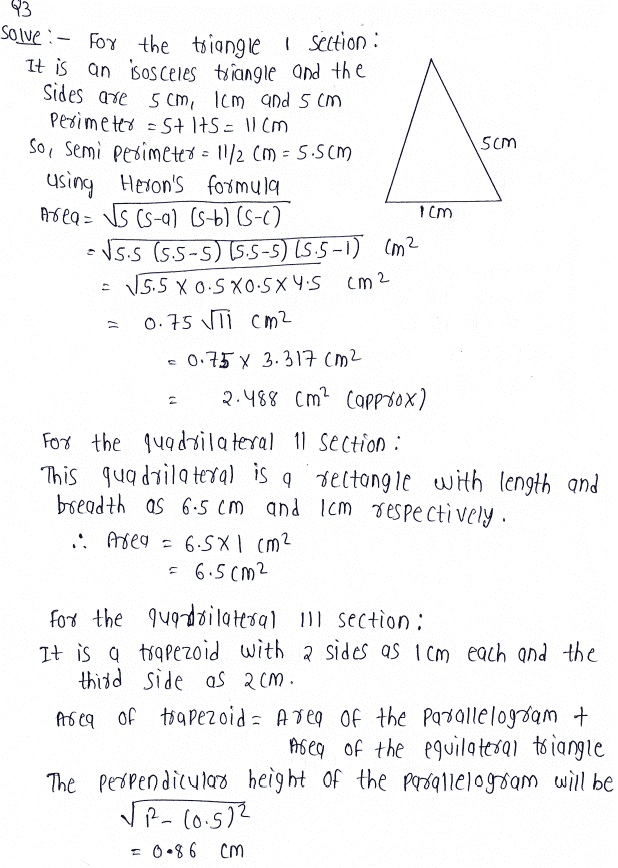 Q3
Solve :- For the triangle I section :
It is an isosceles triangle and the
sides are 5 cm, 1cm and 5 cm
Perimeter = 5+1+5 = 11 cm
So, Semi perimeter = 11/2 cm = 5.5cm
5cm
using Heron's formula
Area = √S (S-a) (S-b) (S-c)
1 cm
= √5.5 (5.5-5) (5.5-5) (5.5-1) cm²
= √5.5 X 0.5 X0.5 X 4.5 cm²
= 0.75 √11 cm²
= 0.75 X 3.317 cm²
= 2.488 cm² (approx)
For the quadrilateral II section :
This quadrilateral is a rectangle with length and
breadth as 6.5 cm and 1cm respectively.
∴ Area = 6.5X1 cm²
= 6.5 cm²
For the quadrilateral III section :
It is a trapezoid with 2 sides as 1cm each and the
third side as 2cm.
Area of trapezoid = Area of the Parallelogram +
Area of the equilateral triangle
The perpendicular height of the parallelogram will be
√1² - (0.5)²
= 0.86 cm